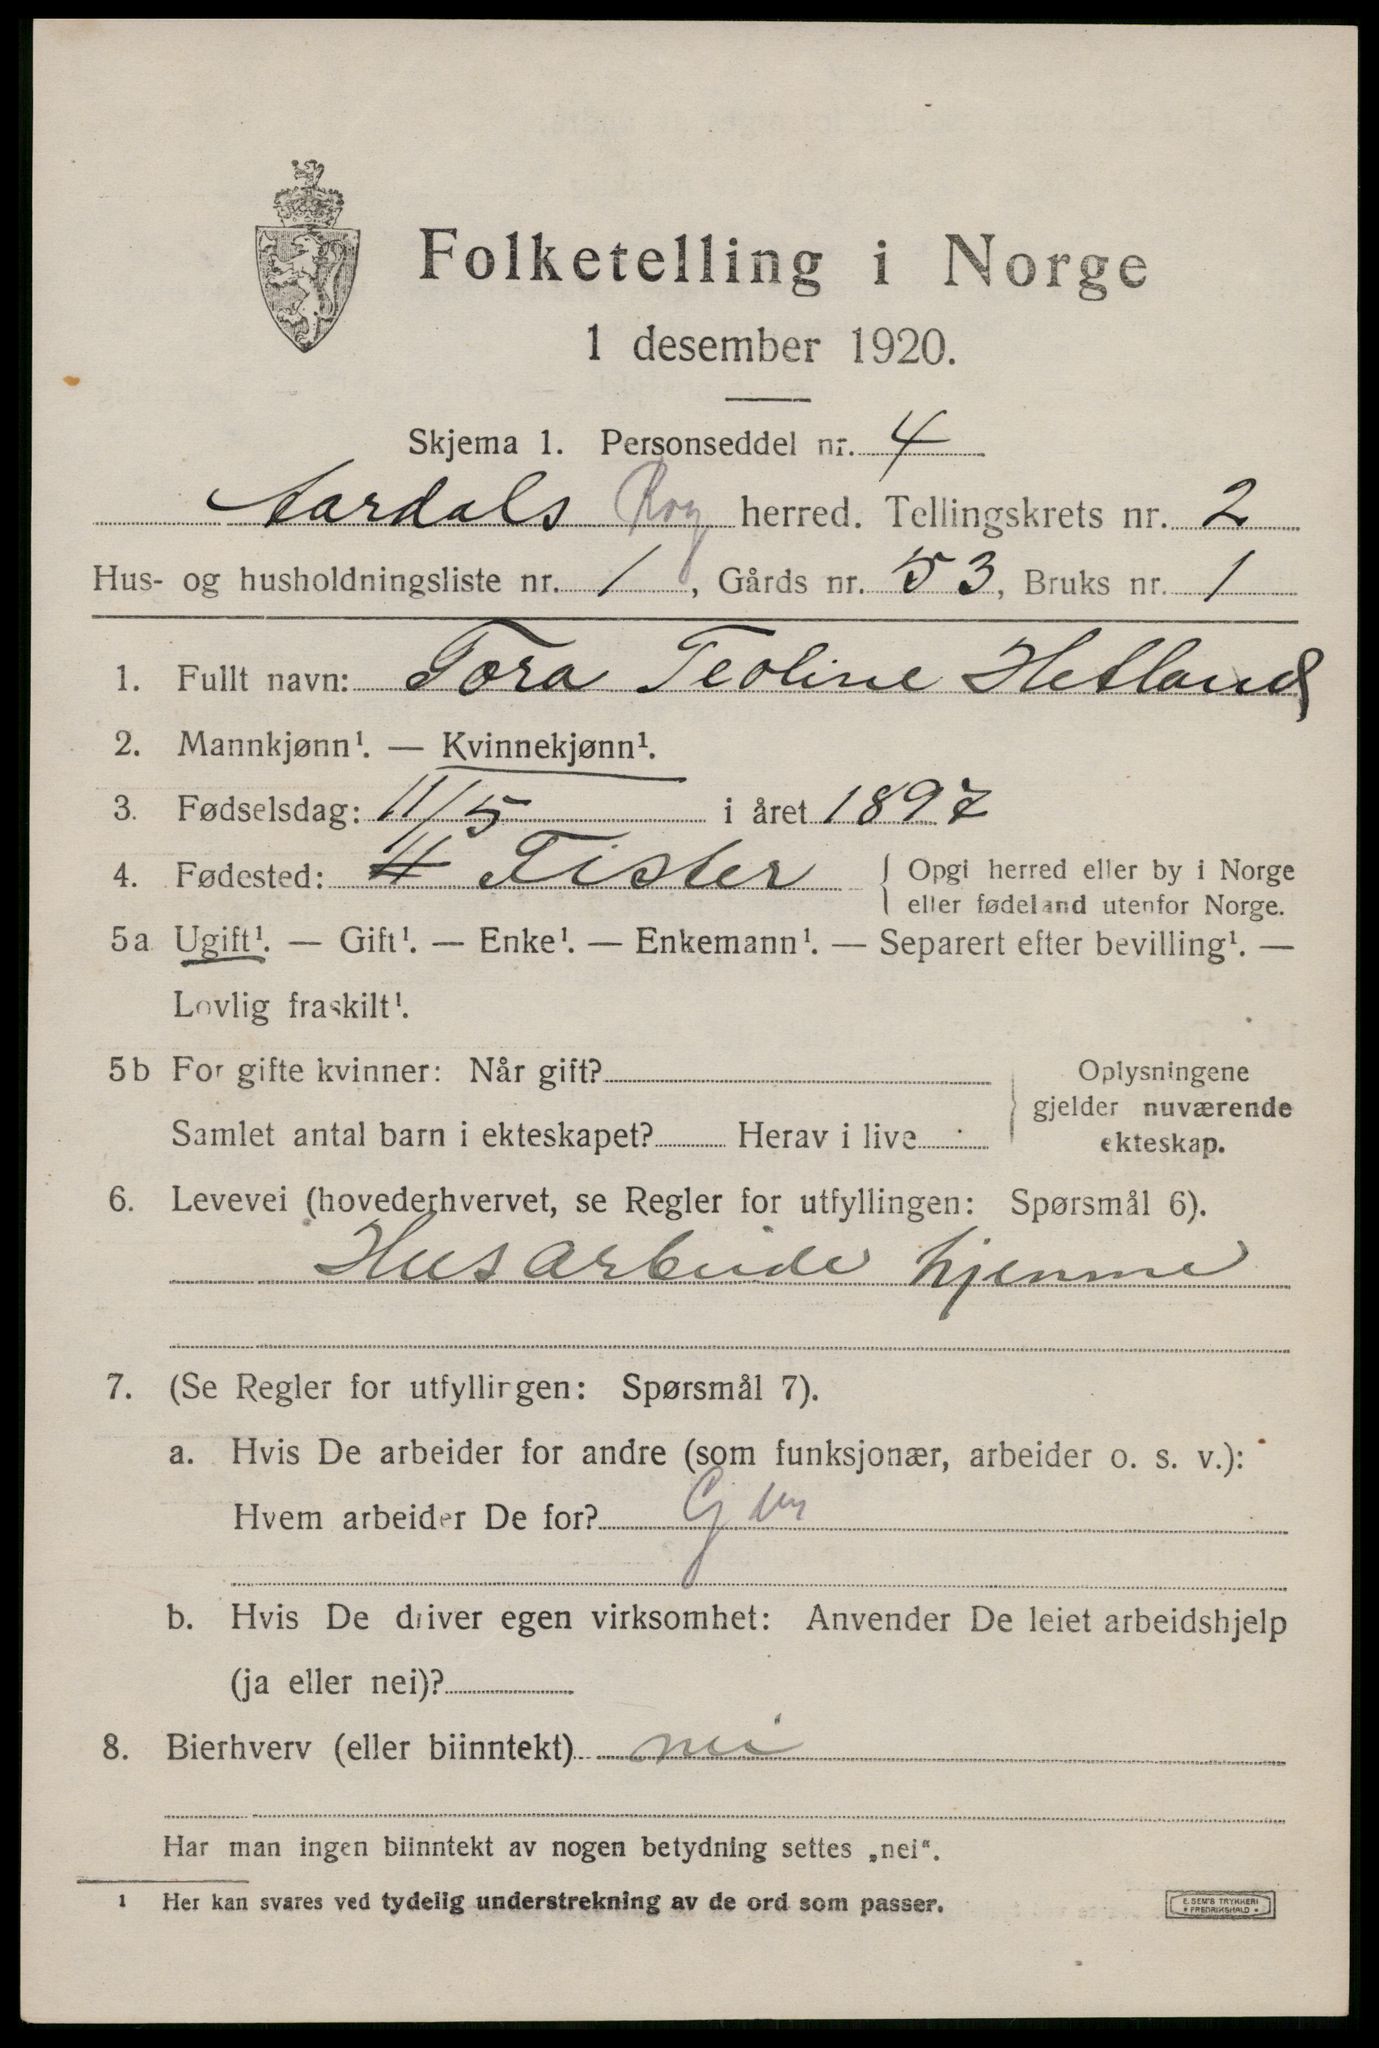 Folketelling i Norge
1 desember 1920.
Skjema 1. Personseddel nr. 4
Aardals Rog herred. Tellingskrets nr. 2
Hus- og husholdningsliste nr. 1, Gårds nr. 53, Bruks nr. 1
1. Fullt navn: Tora Teoline Hetland
2. Mannkjønn¹. — Kvinnekjønn¹.
3. Fødselsdag: 11/5 i året 1897
4. Fødested: H Fister { Opgi herred eller by i Norge
eller fødeland utenfor Norge.
5a Ugift¹. — Gift¹. — Enke¹. — Enkemann¹. — Separert efter bevilling¹. —
Lovlig fraskilt¹.
5b For gifte kvinner: Når gift? Oplysningene
gjelder nuværende
Samlet antal barn i ekteskapet? Herav i live
ekteskap.
6. Levevei (hovederhvervet, se Regler for utfyllingen: Spørsmål 6).
Husarbeide hjemme
7. (Se Regler for utfyllingen: Spørsmål 7).
a. Hvis De arbeider for andre (som funksjonær, arbeider o. s. v.):
Hvem arbeider De for?
b. Hvis De driver egen virksomhet: Anvender De leiet arbeidshjelp
(ja eller nei)?
8. Bierhverv (eller biinntekt) nei
Har man ingen biinntekt av nogen betydning settes „nei“.
1 Her kan svares ved tydelig understrekning av de ord som passer.
E. SEM'S TRYKKERI
* FREDRIKSHALD *